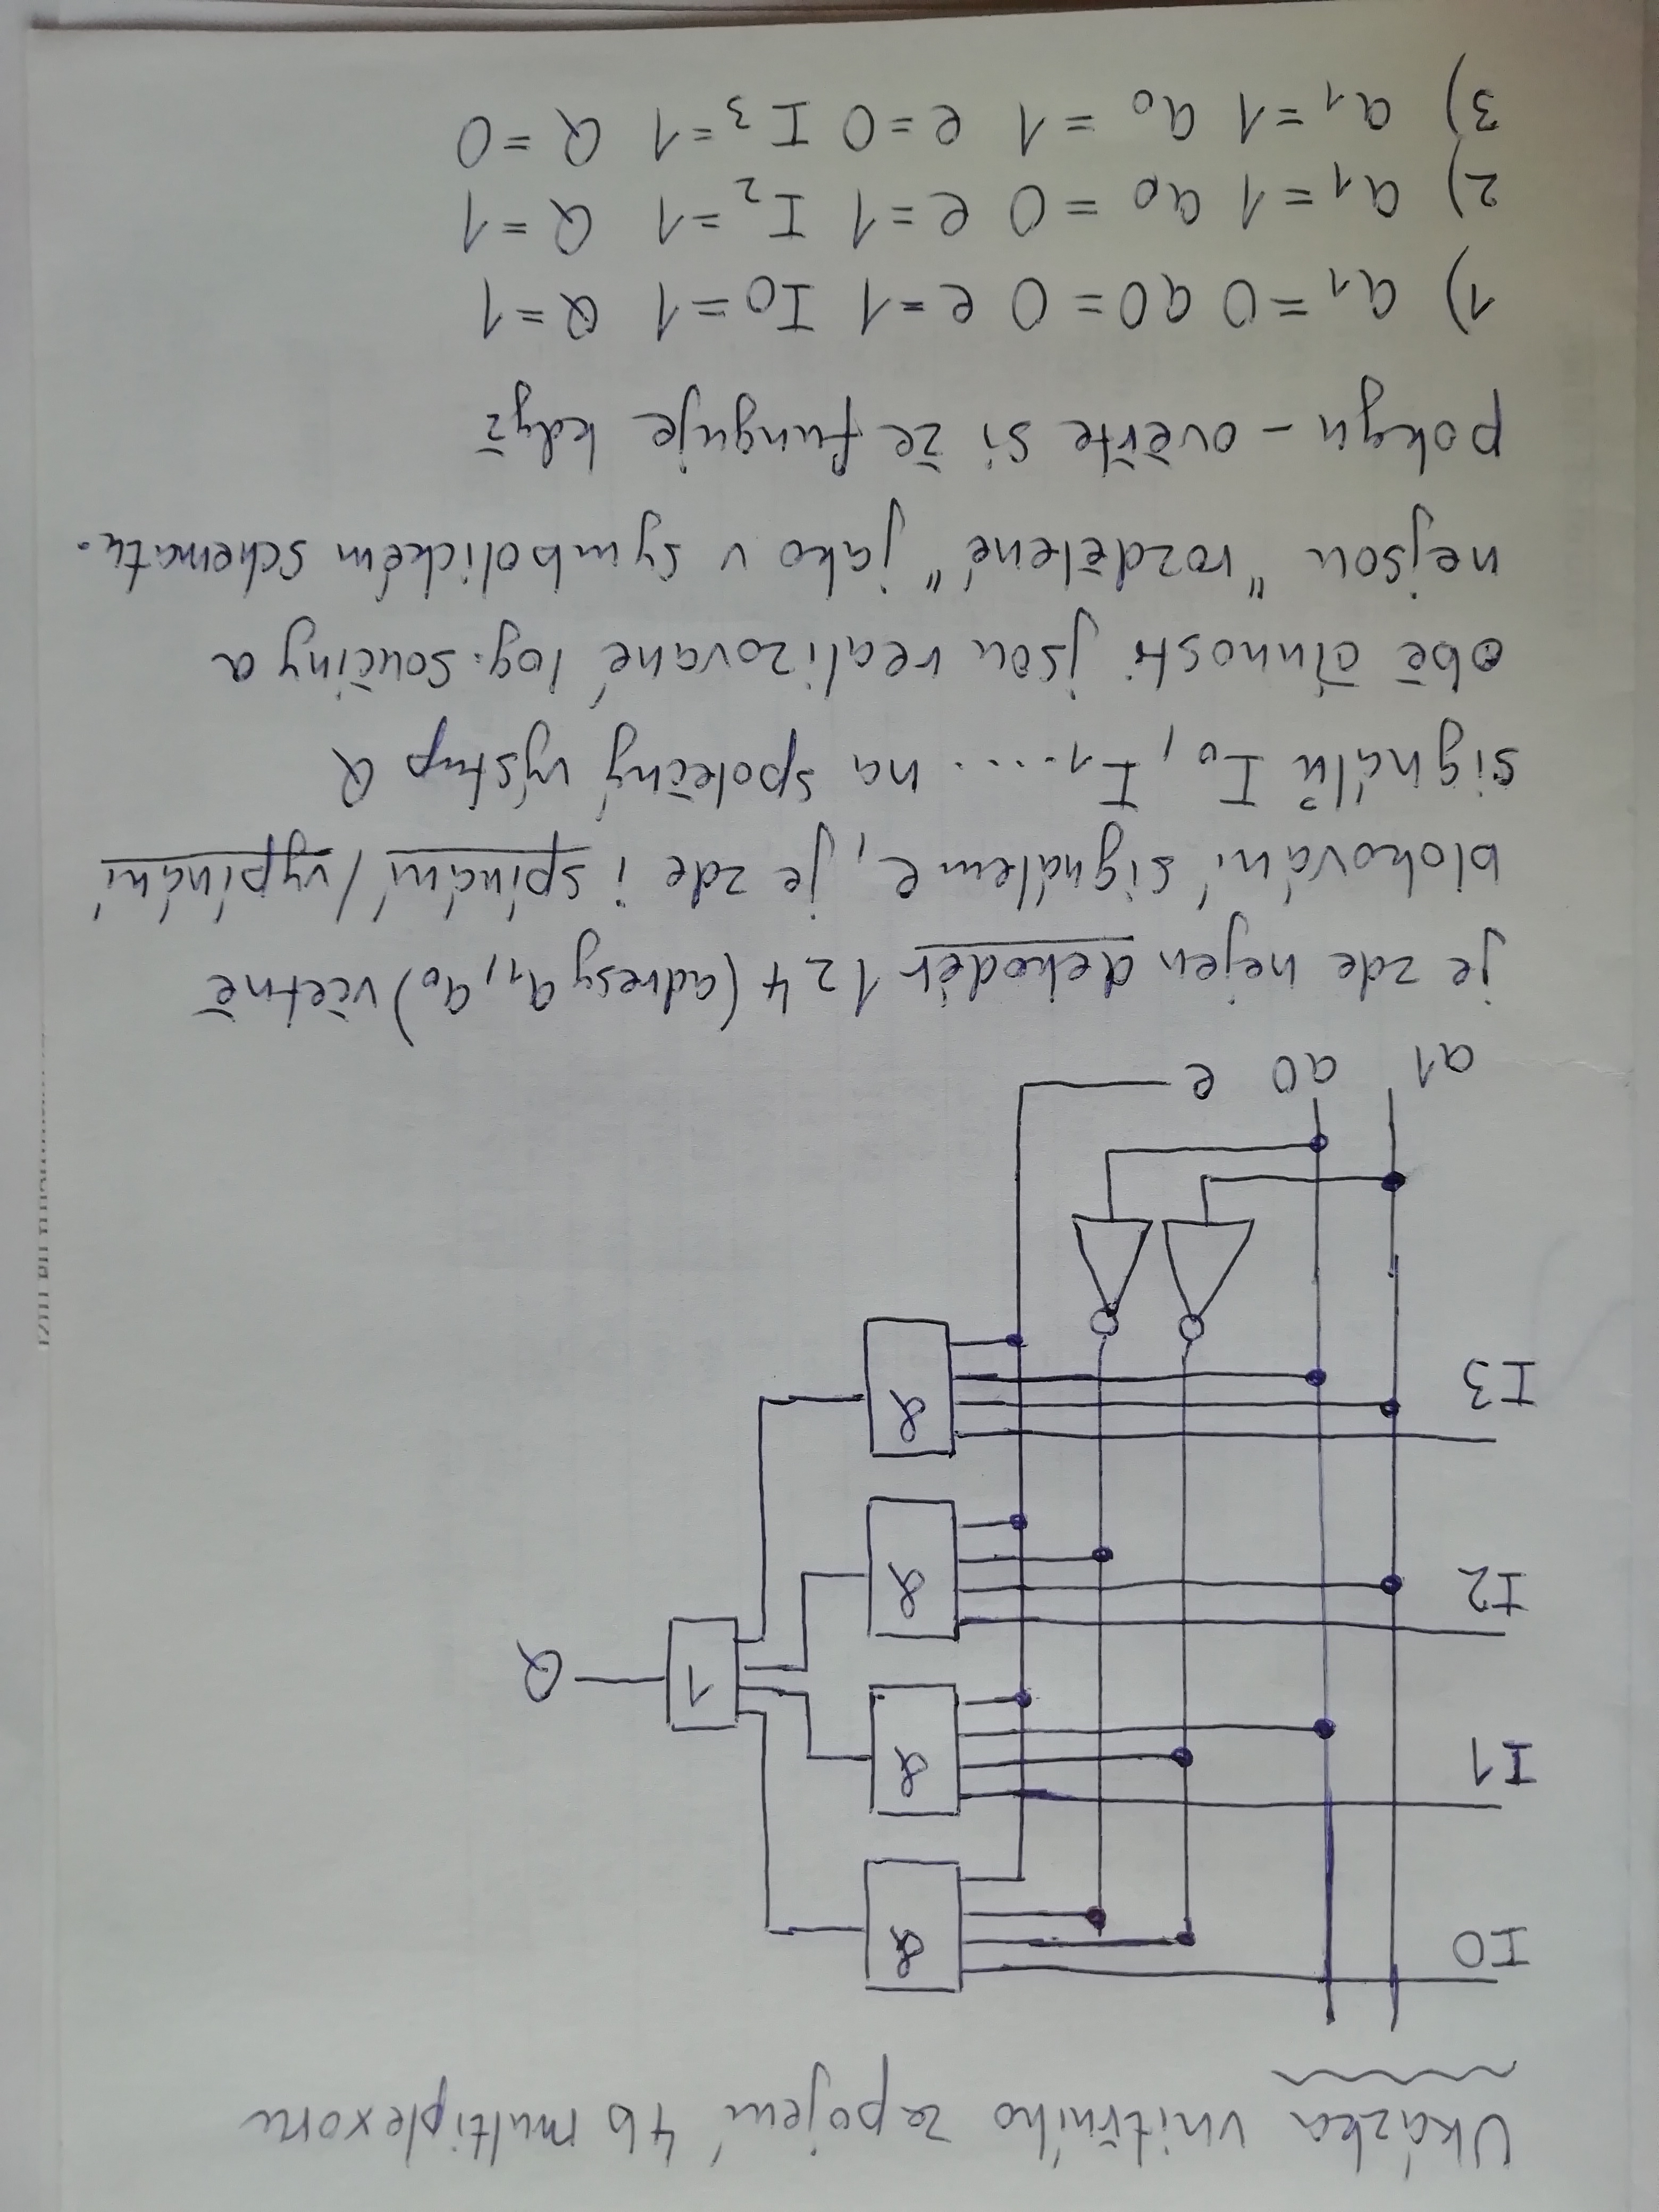 Ukázka vnitřního zapojení 4b multiplexoru
I0
&
I1
&
1
Q
I2
&
I3
&
a1 a0 e
je zde nejen dekodér 1z4 (adresy a₁, a₀) včetně
blokování signálem e, je zde i spínání / vypínání
signálů I₀, I₁.... na společný výstup Q
obě činnosti jsou realizované log. součiny a
nejsou "rozdělené" jako v symbolickém schematu.
pokyn - ověřte si že funguje když
1) a₁ = 0 a0 = 0 e = 1 I0 = 1 Q = 1
2) a₁ = 1 a₀ = 0 e = 1 I₂ = 1 Q = 1
3) a₁ = 1 a₀ = 1 e = 0 I₃ = 1 Q = 0